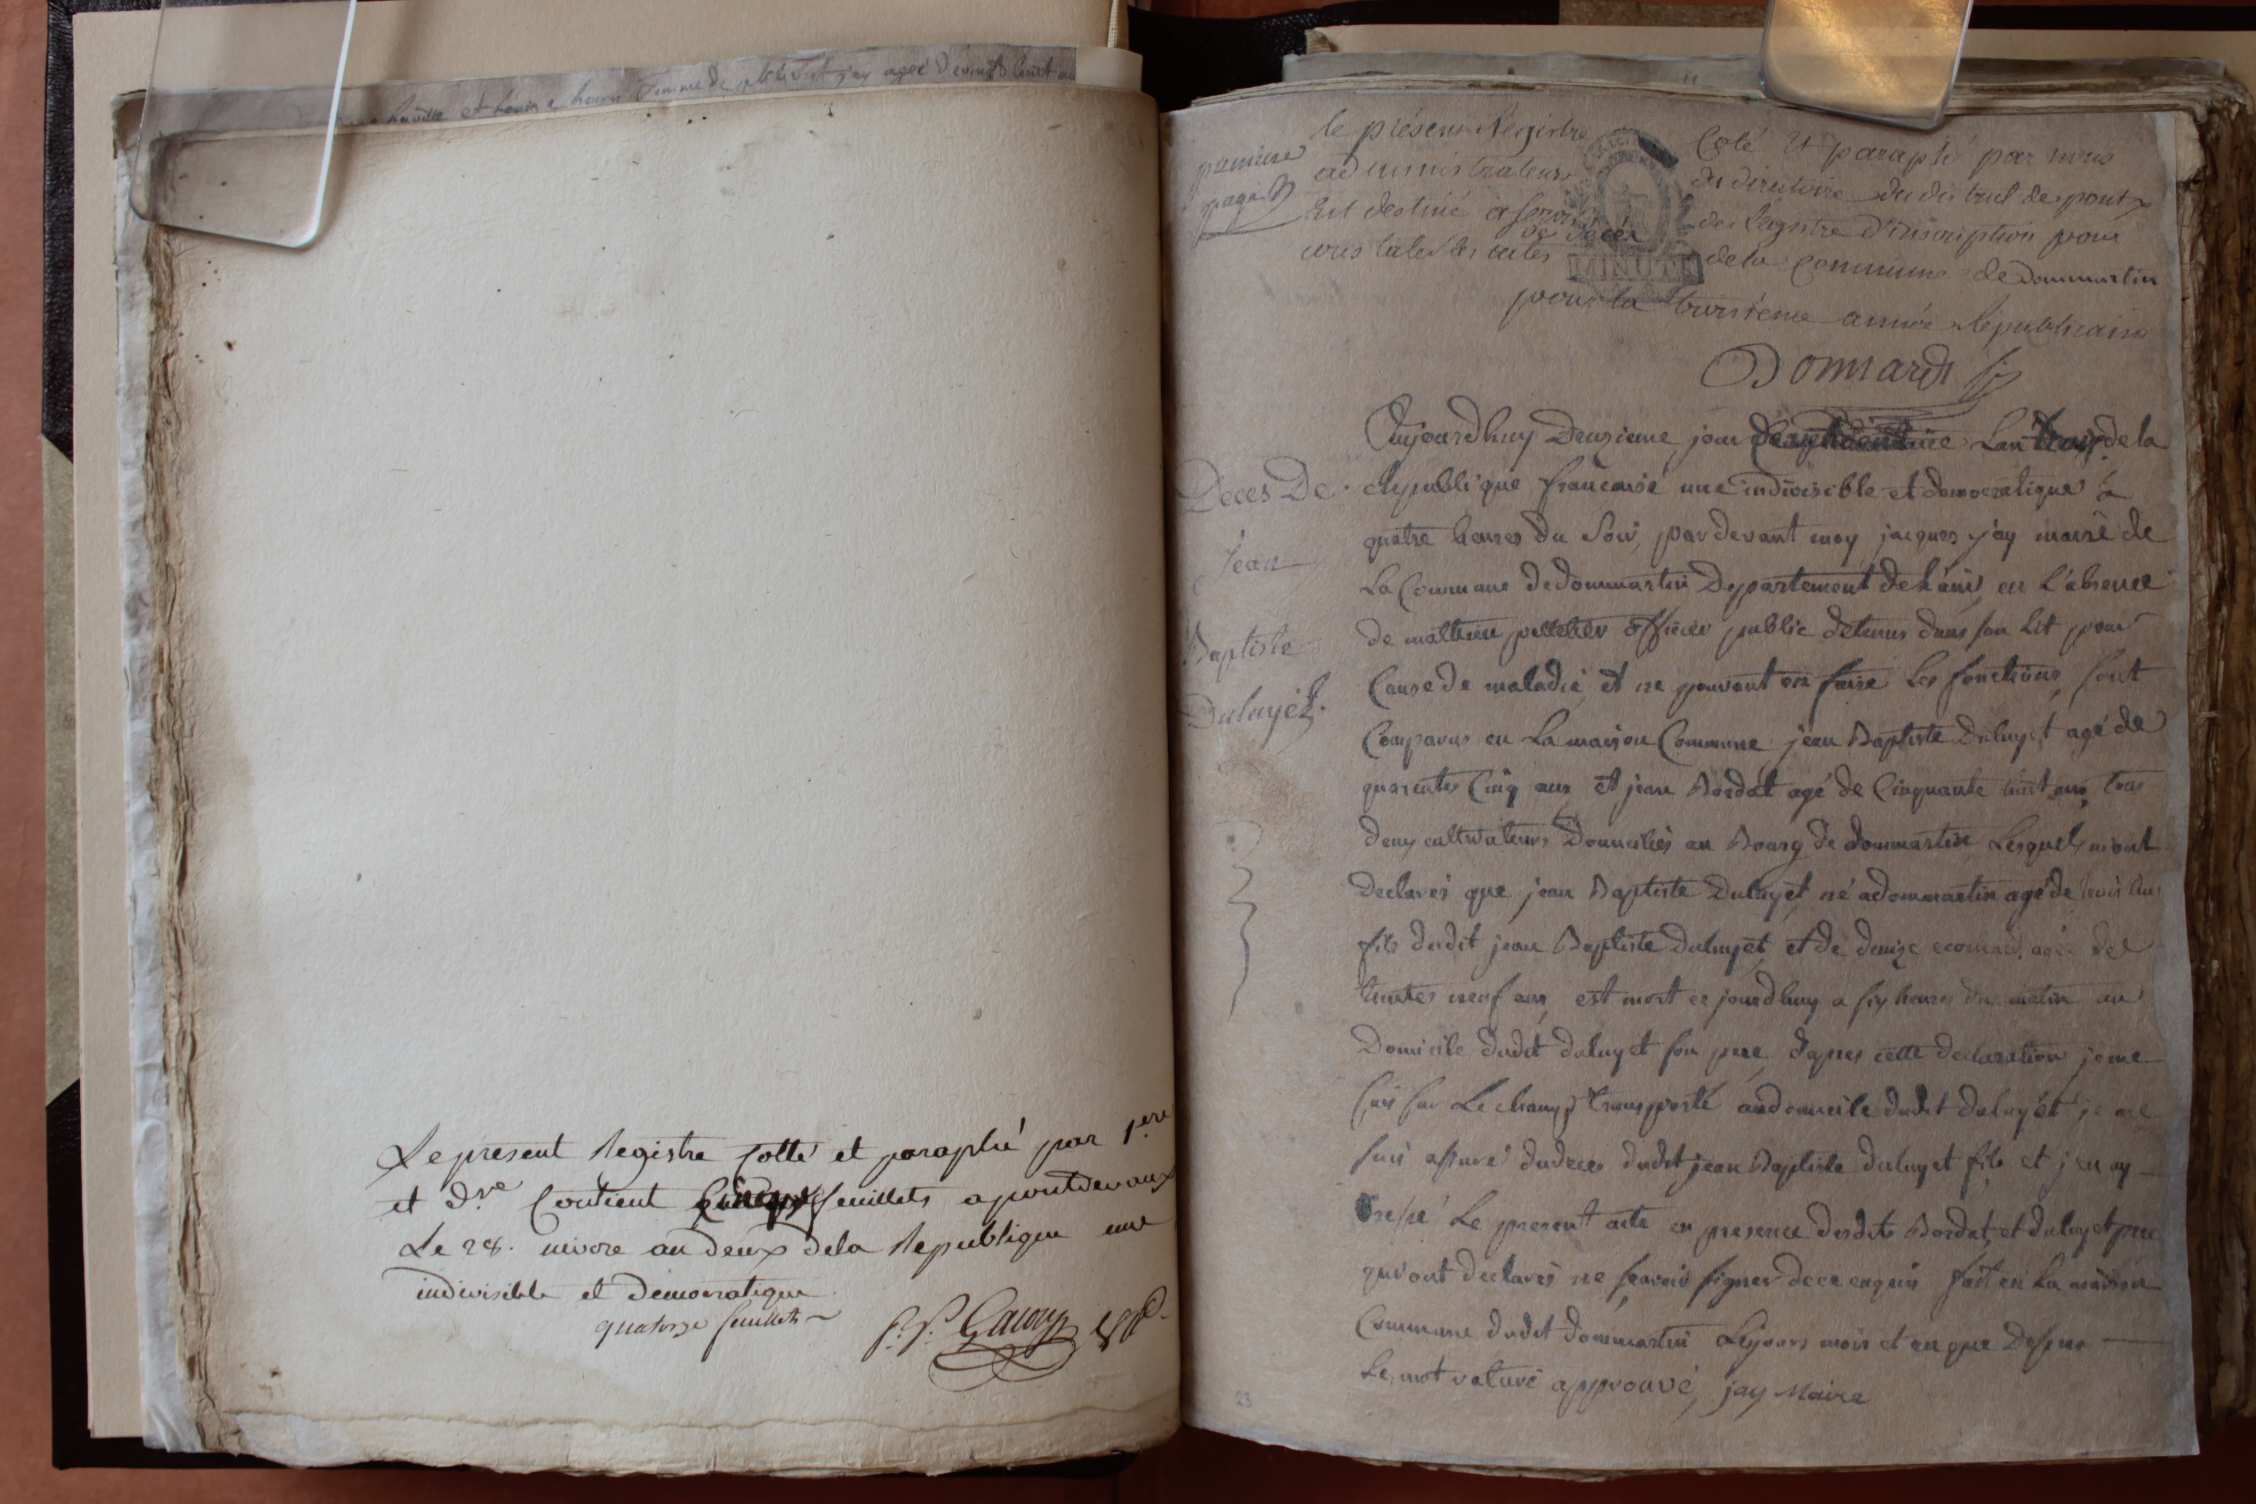 Le present Registre Cotté et paraphé par 1ere
et dre Contient feuillets a pontdevaux
Le 28. nivose an deux dela Republique une
indivisible et démocratique
quatorze feuillets
premiere
page
le présent Registre Coté et paraphé par nous
administrateur du directoire du district de pont
Est destiné a servir de Registre d'inscription pour
constater les actes de deces de la Commune de dommartin
pour la troisième année Républicaine
MINUTE
Deces De
Jean
Baptiste
Duluyét.
Aujourdhuy Deuzieme jour Lan trois de la
Republique francaise une indivisible et democratique a
quatre heures du Soir, pardevant moy jacques jay maire de
La Commune de dommartin Departement de L'ain, en L'absence
de mathieu pelletier officier public detenus dans son Lit pour
Cause de maladie, et ne pouvant en faire Les fonctions, sont
Comparus en La maison Commune jean Baptiste Duluyet agé de
quarantes Cinq ans et jean Bordat agé de Cinquante huit ans, tous
deux cultivateurs Domiciliés au Bourg de dommartin Lesquels m'ont
declarés que jean Baptiste Duluyet, né a dommartin agé de trois ans
fils dudit jean Baptiste Duluyét, et de denize agée de
trentes neuf ans, est mort ce jourdhuy a six heures du matin au
Domicile dudit duluyet son pere, d'apres cette declaration je me
suis sur Le champ transporté au domicile dudit duluyét, je me
suis assuré du deces dudit jean Baptiste duluyet fils, et j'en ay
Dressé Le present acte en presence desdits Bordat, et duluyet pere
qui ont declarés ne sçavoir signer de ce enquis fait en La maison
Commune dudit dommartin Les jours mois et an que Dessus
Le mot raturé approuvé, jay Maire
23